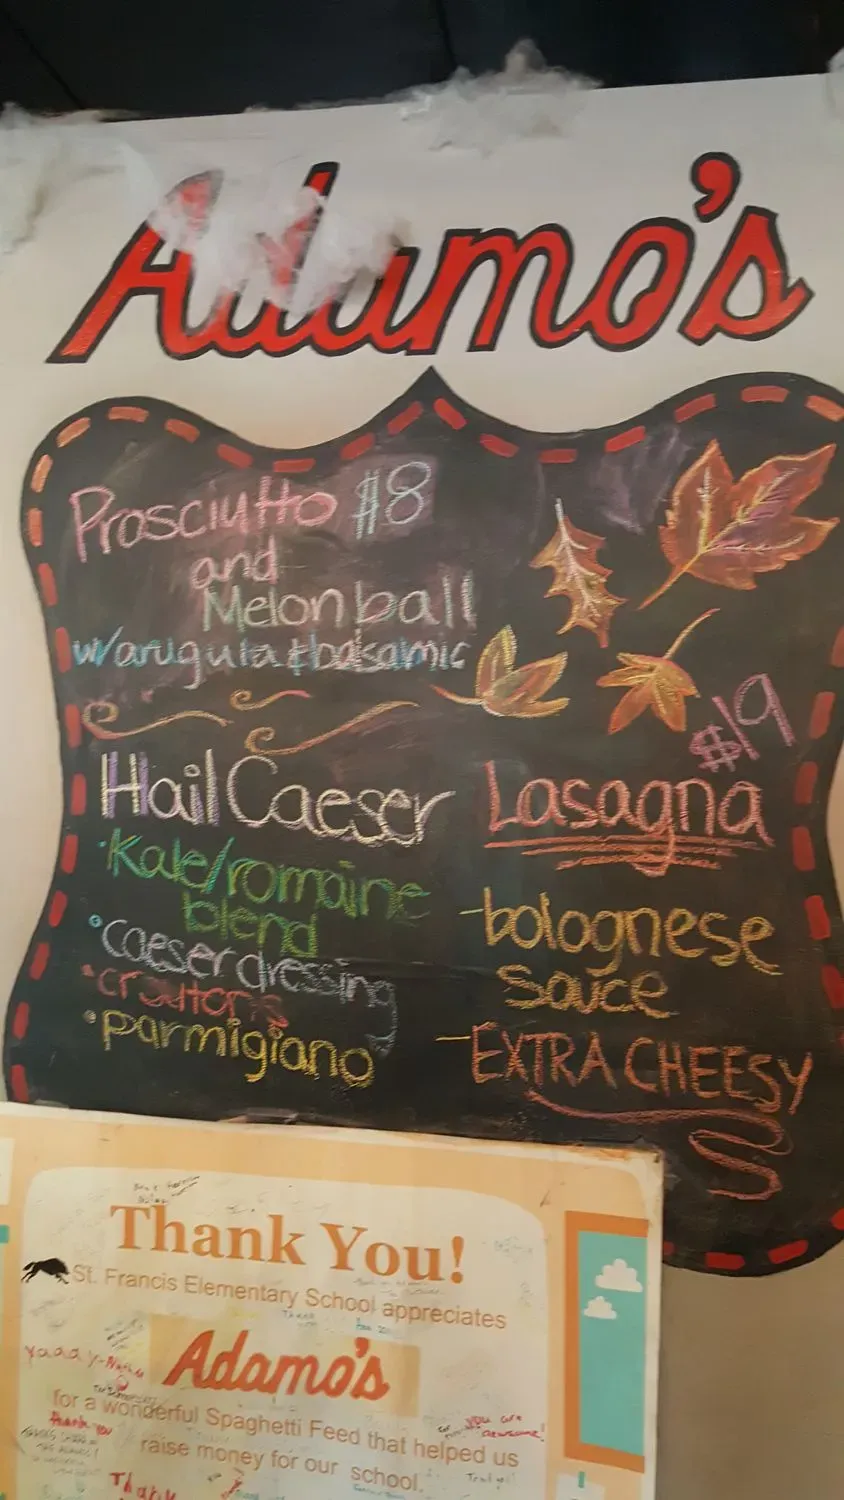 Adamo's
Prosciutto $8
and
Melon ball
w/arugula & balsamic
Hail Caeser
•Kale/romaine
blend
•caeser dressing
•croutons
•parmigiano
$19
Lasagna
-bolognese
sauce
-EXTRA CHEESY
Thank You!
St. Francis Elementary School appreciates
Adamo's
for a wonderful Spaghetti Feed that helped us
raise money for our school.
yaaay-
thank you
you are
awesome!
Thank